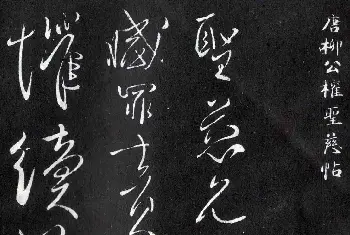 唐柳公權聖慈帖
聖慈允
罪
懼續